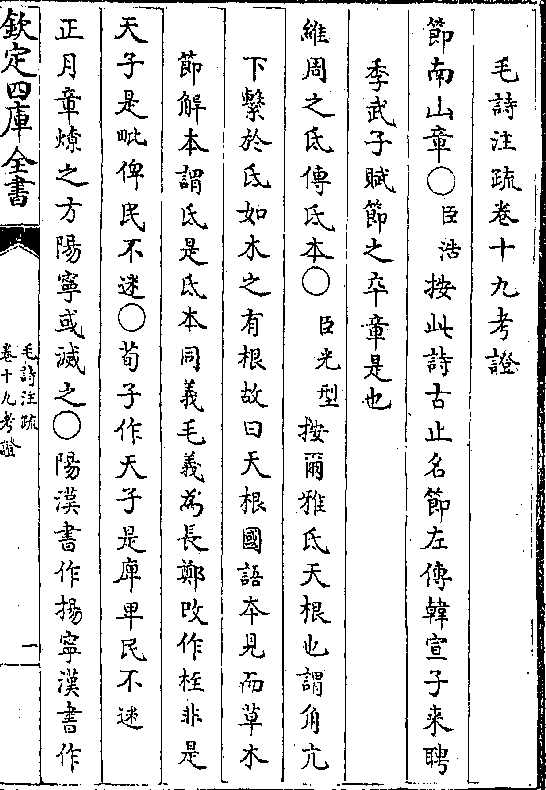 毛詩注疏卷十九考證
節南山章○臣浩按此詩古止名節左傳韓宣子来聘
季武子賦節之卒章是也
維周之氐傳氐本○臣光型按爾雅氐天根也謂角亢
下繫於氐如木之有根故曰天根國語本見而草木
節解本謂氐是氐本同義毛義為長鄭改作桎非是
天子是毗俾民不迷○荀子作天子是庳卑民不迷
正月章燎之方陽寧或滅之○陽漢書作揚寧漢書作
欽定四庫全書
毛詩注疏
卷十九考證
一